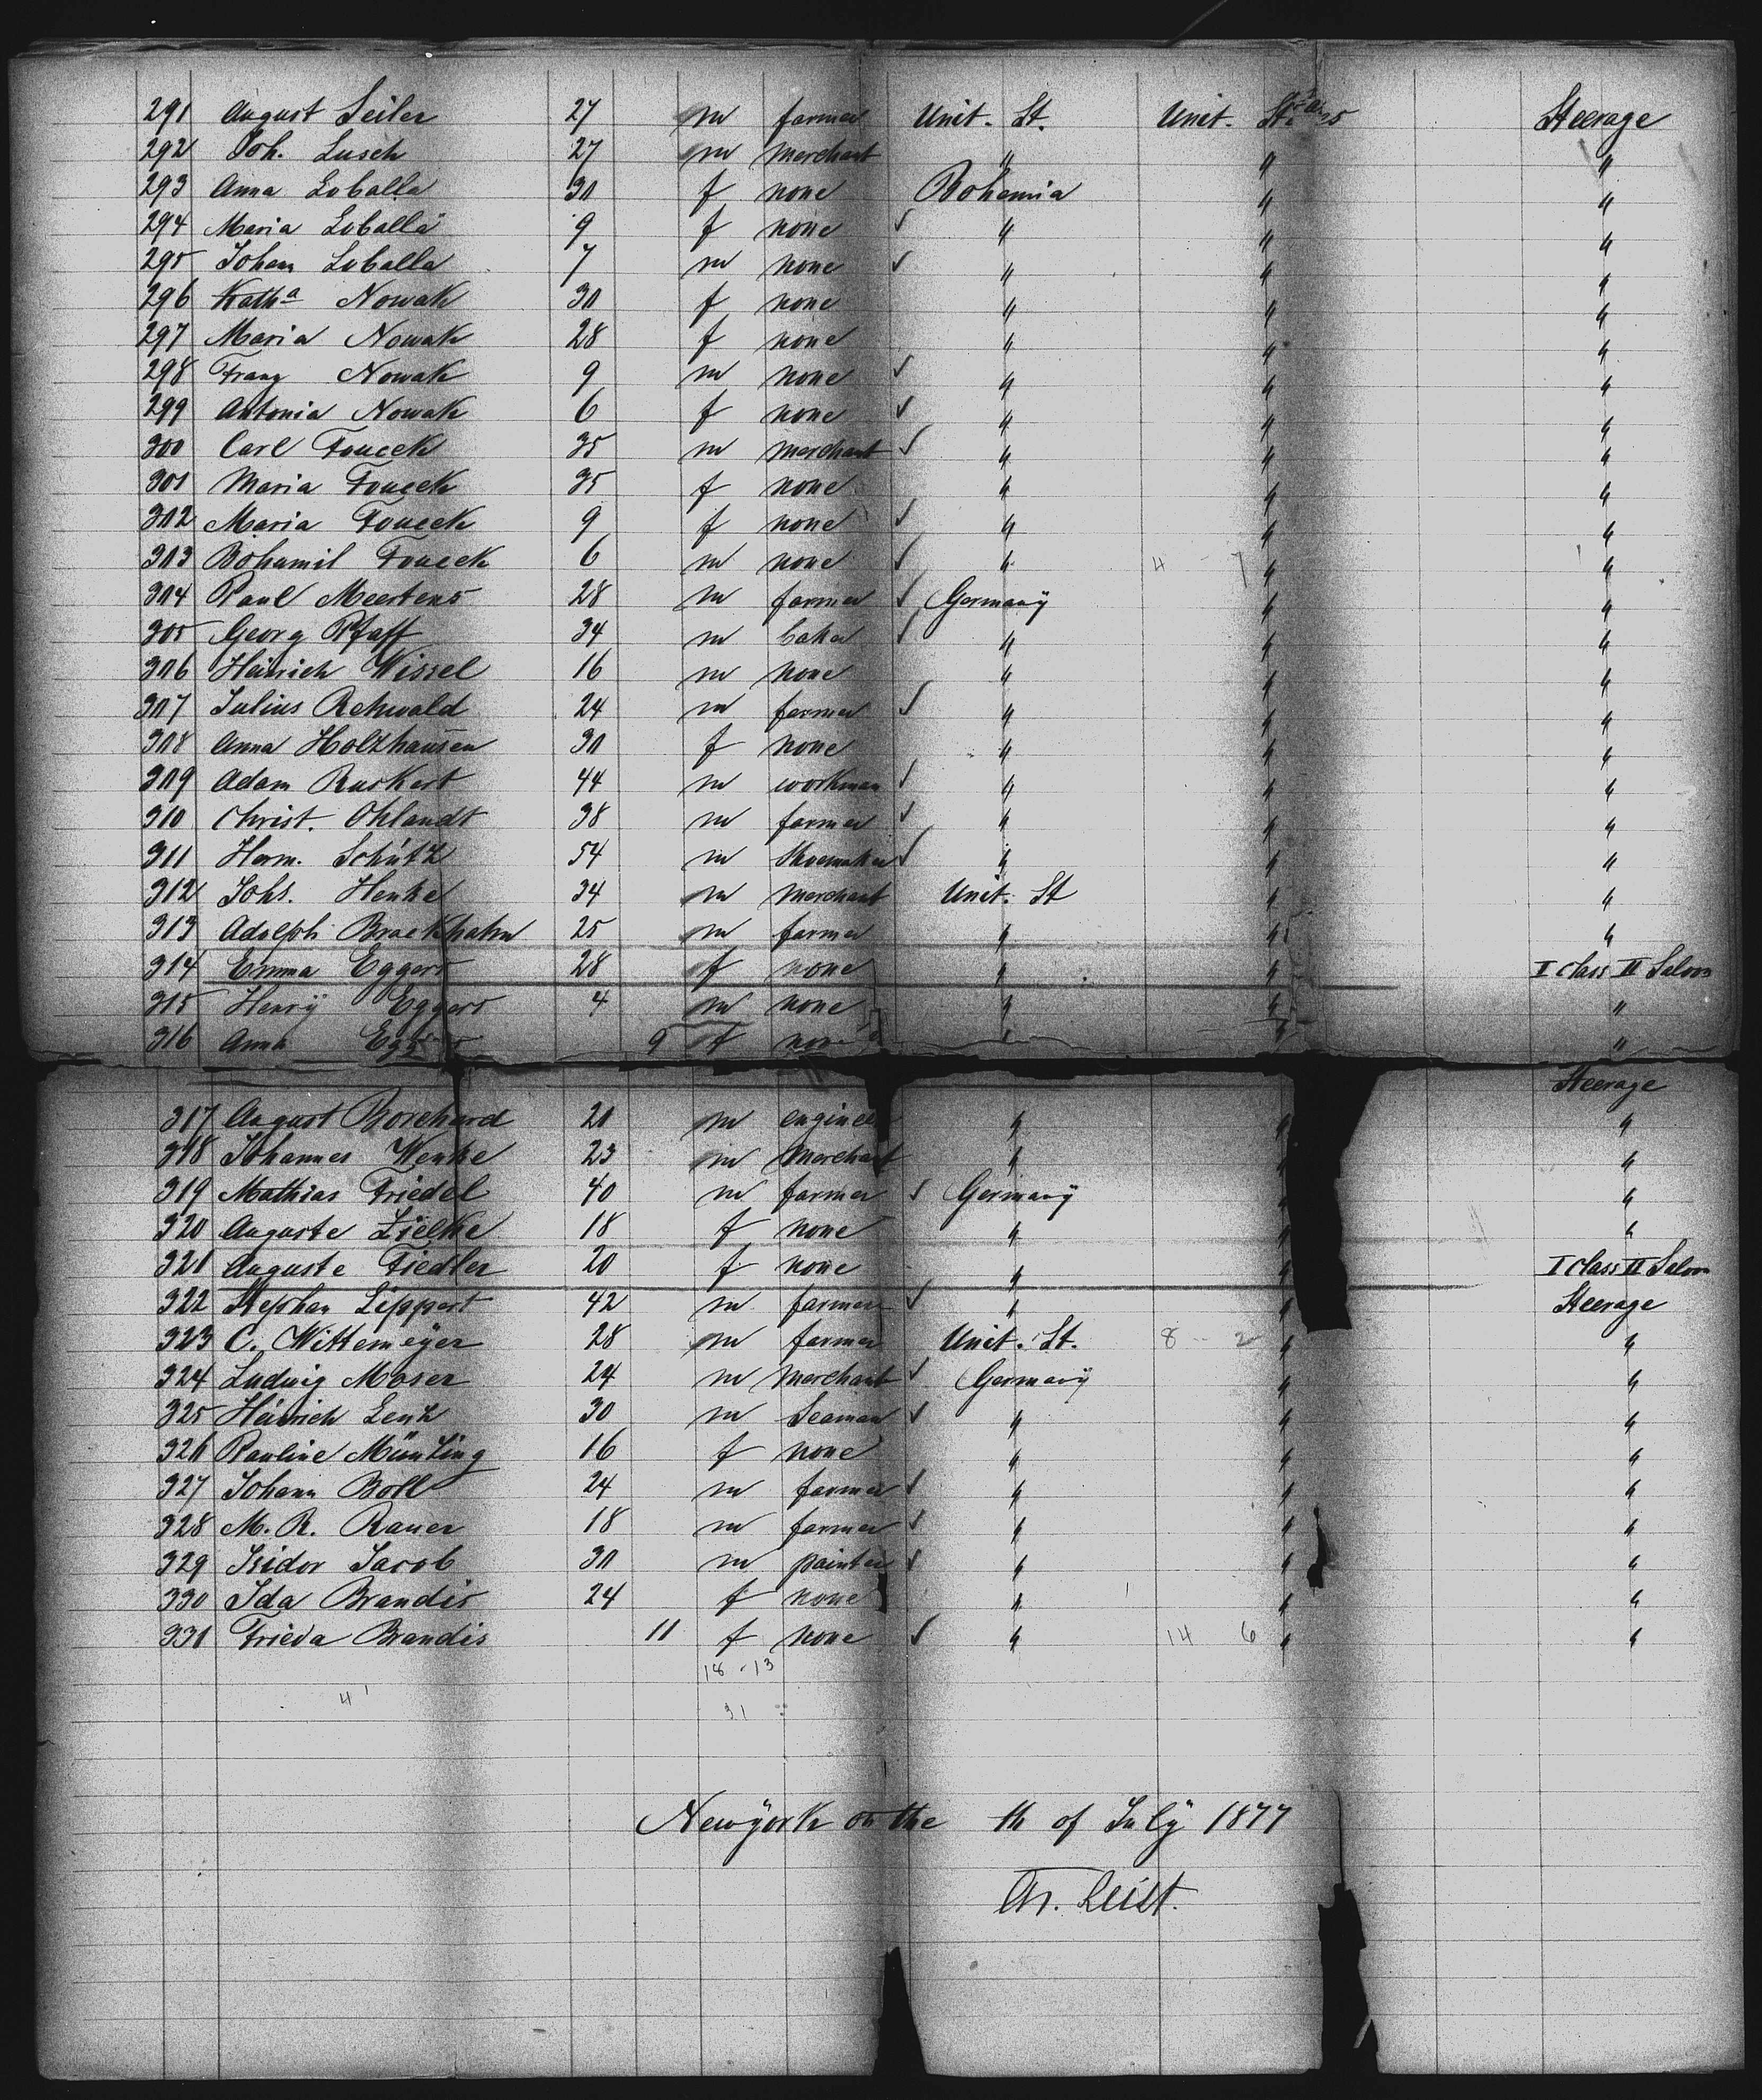 291 August Seiler 27 m farmer Unit. St. Unit. St. Steerage
292 Joh. Lusch 27 m merchant " " "
293 Anna Loballa 30 f none Bohemia " "
294 Maria Loballa 9 f none ✓ " " "
295 Johan Loballa 7 m none ✓ " " "
296 Kath^a Nowak 30 f none " " "
297 Maria Nowak 28 f none " " "
298 Franz Nowak 9 m none ✓ " " "
299 Antonia Nowak 6 f none ✓ " " "
300 Carl Toucek 35 m merchant ✓ " " "
301 Maria Toucek 35 f none " " "
302 Maria Toucek 9 f none ✓ " " "
303 Bohumil Toucek 6 m none ✓ " 4 - 7 " "
304 Paul Meertens 28 m farmer ✓ Germany " "
305 Georg Pfaff 34 m baker ✓ " " "
306 Heinrich Wissel 16 m none " " "
307 Julius Rehwald 24 m farmer ✓ " " "
308 Anna Holzhausen 30 f none " " "
309 Adam Ruckert 44 m workman ✓ " " "
310 Christ. Ohlandt 38 m farmer ✓ " " "
311 Herm. Schütz 54 m Shoemaker ✓ " " "
312 Johs. Henke 34 m merchant Unit. St " "
313 Adolph Brackhahn 25 m farmer " " "
314 Emma Eggers 28 f none " " I class II Saloon
315 Henry Eggers 4 m none " " "
316 Anna Eggers 9 f none " " "
Steerage
317 August Borchard 21 m engineer " " "
318 Johannes Wenke 23 m merchant " " "
319 Mathias Friedel 40 m farmer ✓ Germany " "
320 Auguste Zielke 18 f none " " "
321 Auguste Fiedler 20 f none " " I class II Saloon
322 Stephan Lippert 42 m farmer ✓ " " Steerage
323 C. Wittemeyer 28 m farmer Unit. St. 8 - 2 " "
324 Ludwig Moser 24 m merchant ✓ Germany " "
325 Heinrich Lenz 30 m Seaman ✓ " " "
326 Pauline Münting 16 f none " " "
327 Johann Boll 24 m farmer ✓ " " "
328 M. R. Rauer 18 m farmer ✓ " " "
329 Isidor Jacob 30 m painter ✓ " " "
330 Ida Brandis 24 f none " " "
331 Frieda Brandis 11 f none ✓ " 14 6 " "
18 - 13
41
31
Newyork on the th of July 1877
Leist.